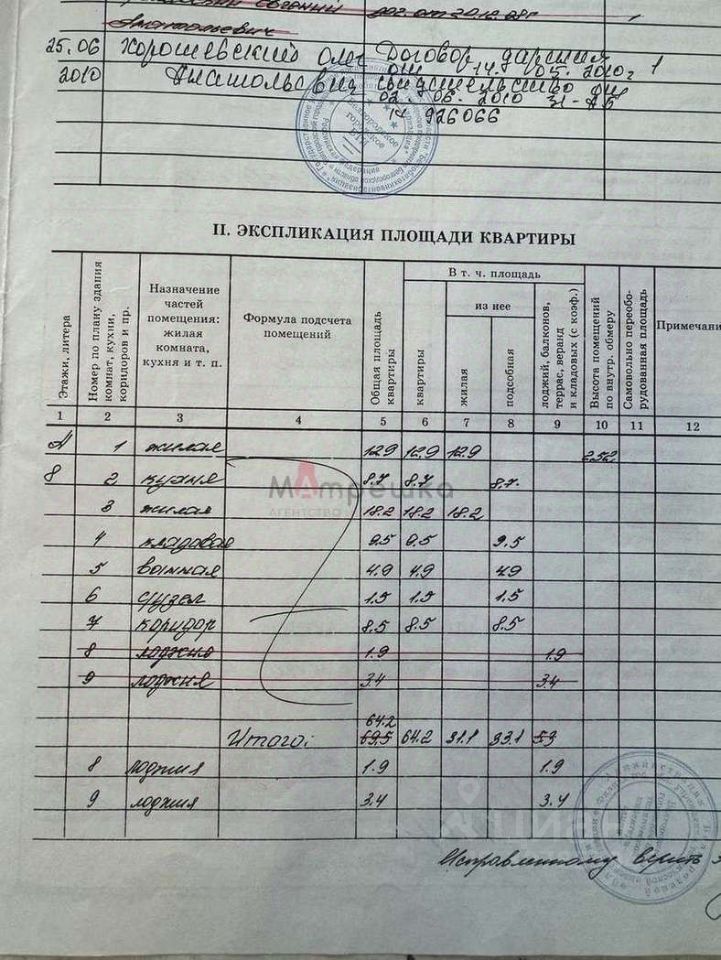 Евгений дог. от 20.12.08г 1
Анатольевич
25.06 Хорошевский Олег Договор дарения 1
2010 Анатольевич от 14. 05. 2010г
свидетельство
02. 06. 2010 31-
926066
II. ЭКСПЛИКАЦИЯ ПЛОЩАДИ КВАРТИРЫ
Этажи, литера
Номер по плану здания комнат, кухни, коридоров и пр.
Назначение
частей
помещения:
жилая
комната,
кухня и т. п.
Формула подсчета
помещений
Общая площадь квартиры
В т. ч. площадь
квартиры
из нее
жилая
подсобная
лоджий, балконов, террас, веранд и кладовых (с коэф.)
Высота помещений по внутр. обмеру
Самовольно переоборудованная площадь
Примечани
1 2 3 4 5 6 7 8 9 10 11 12
А 1 жилая 12.9 12.9 12.9 252
8 2 кухня 8.7 8.7 8.7
3 жилая 18.2 18.2 18.2
4 кладовая 9.5 9.5 9.5
5 ванная 4.9 4.9 4.9
6 с/узел 1.5 1.5 1.5
7 коридор 8.5 8.5 8.5
8 лоджия 1.9 1.9
9 лоджия 3.4 3.4
64.2
Итого: 69.5 64.2 31.1 33.1 5.3
8 лоджия 1.9 1.9
9 лоджия 3.4 3.4
Исправленному верить
МАтрешка
АГЕНТСТВО
Циан